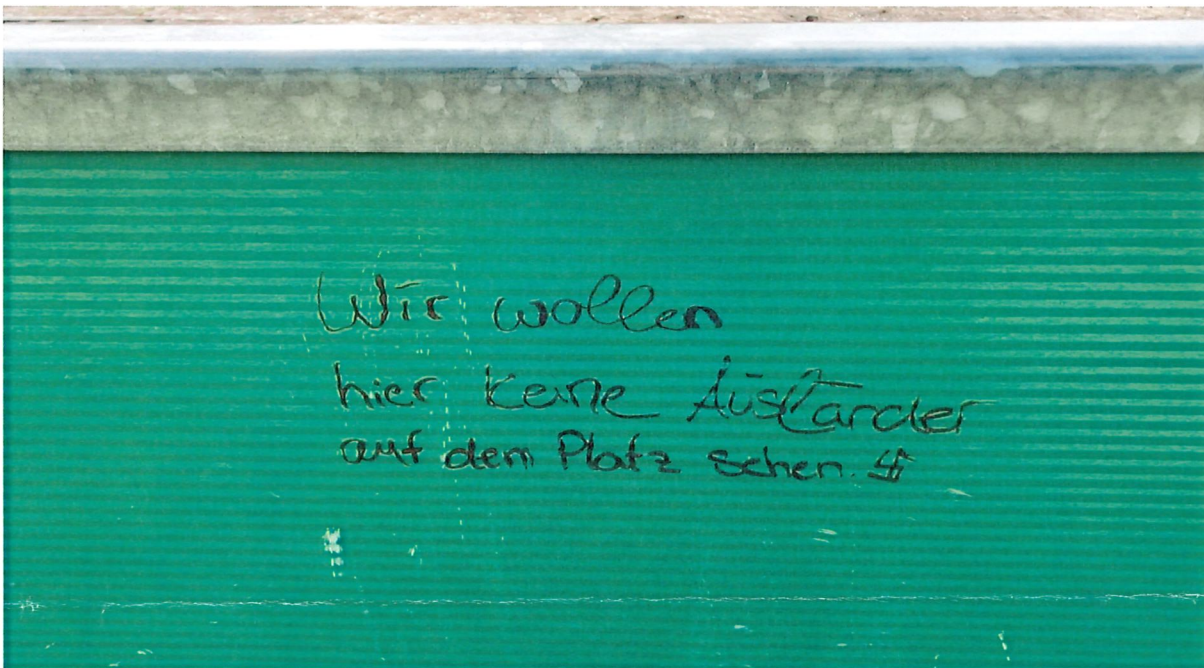 Wir wollen
hier keine Ausländer
auf dem Platz sehen. 卐